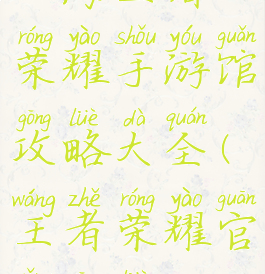 róng yào shǒu yóu guǎn
荣耀手游馆
gōng lüè dà quán
攻略大全(
wáng zhě róng yào guān
王者荣耀官